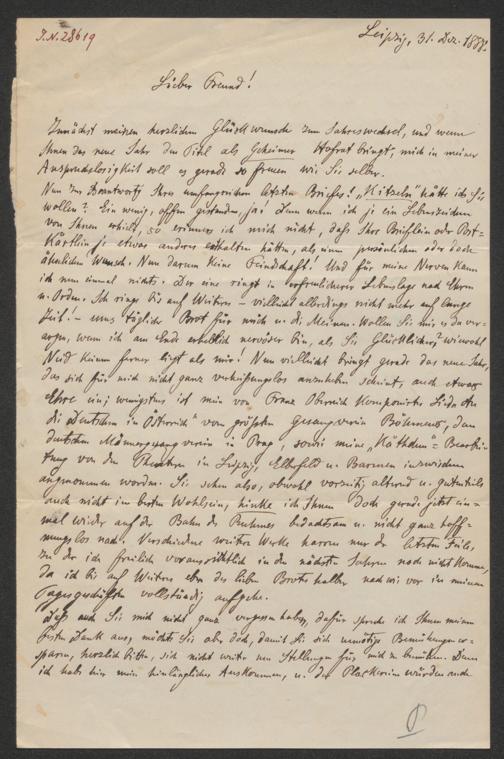 I.N. 28619
Leipzig, 31. Dez. 1888.
Lieber Freund!
Zunächst meinen herzlichen Glückwunsch zum Jahreswechsel, und wenn
Ihnen das neue Jahr den Titel als Geheimer Hofrat bringt, mich in meiner
Anspruchslosigkeit soll es gerade so freuen wie Sie selber.
Nun zur Beantwortung Ihres umfangreichen letzten Briefes! „Kitzeln" hätte ich Sie
wollen? Ein wenig, offen gestanden, ja! Denn wenn ich je ein Lebenszeichen
von Ihnen erhielt, so erinnere ich mich nicht, daß Ihre Brieflein oder Post-
Kärtlein je etwas anderes enthalten hätten, als einen persönlichen oder doch
ähnlichen Wunsch. Nun darum keine Feindschaft! Und für meine Nerven kann
ich nun einmal nichts. Der eine ringt in erfreulicherer Lebenslage nach Ehren
u. Orden. Ich ringe bis auf Weiteres – vielleicht allerdings nicht mehr auf lange
Zeit! – ums tägliche Brot für mich u. die Meinen. Wollen Sie mir es da ver-
argen, wenn ich am Ende erheblich nervöser bin, als Sie Glücklicher? wiewohl
Neid keinem ferner liegt als mir! Nun vielleicht bringt gerade das neue Jahr,
das sich für mich nicht ganz verheißungslos anzulassen scheint, auch etwas
Ehre ein; wenigstens ist mein von Franz komponirtes Lied „An
die Deutschen in Österreich" vom größten Gesangverein Böhmens, dem
deutschen Männergesangverein in Prag, sowie meine „Käthchen"-Bearbei-
tung von den Theatern in Leipzig, Elberfeld u. Barmen inzwischen
angenommen worden. Sie sehen also, obwohl vorzeitig alternd u.
auch nicht im besten Wohlsein, hinke ich Ihnen doch gerade jetzt ein-
mal wieder auf der Bahn des Ruhmes bedachtsam u. nicht ganz hoff-
nungslos nach. Verschiedene weitere Werke harren nur der letzten Feile,
zu der ich freilich voraussichtlich in den nächsten Jahren noch nicht komme,
da ich bis auf Weiteres eben des lieben Brotes halber nach wie vor in meinen
Tagesgeschäften vollständig aufgehe.
Daß auch Sie mich nicht ganz vergessen haben, dafür spreche ich Ihnen meinen
besten Dank aus, möchte Sie aber doch, damit Sie sich unnötige Bemühungen er-
sparen, herzlich bitten, sich nicht weiter um Stellungen für mich zu bemühen. Denn
ich habe hier mein hinlängliches Auskommen, u. die Plackereien würden auch